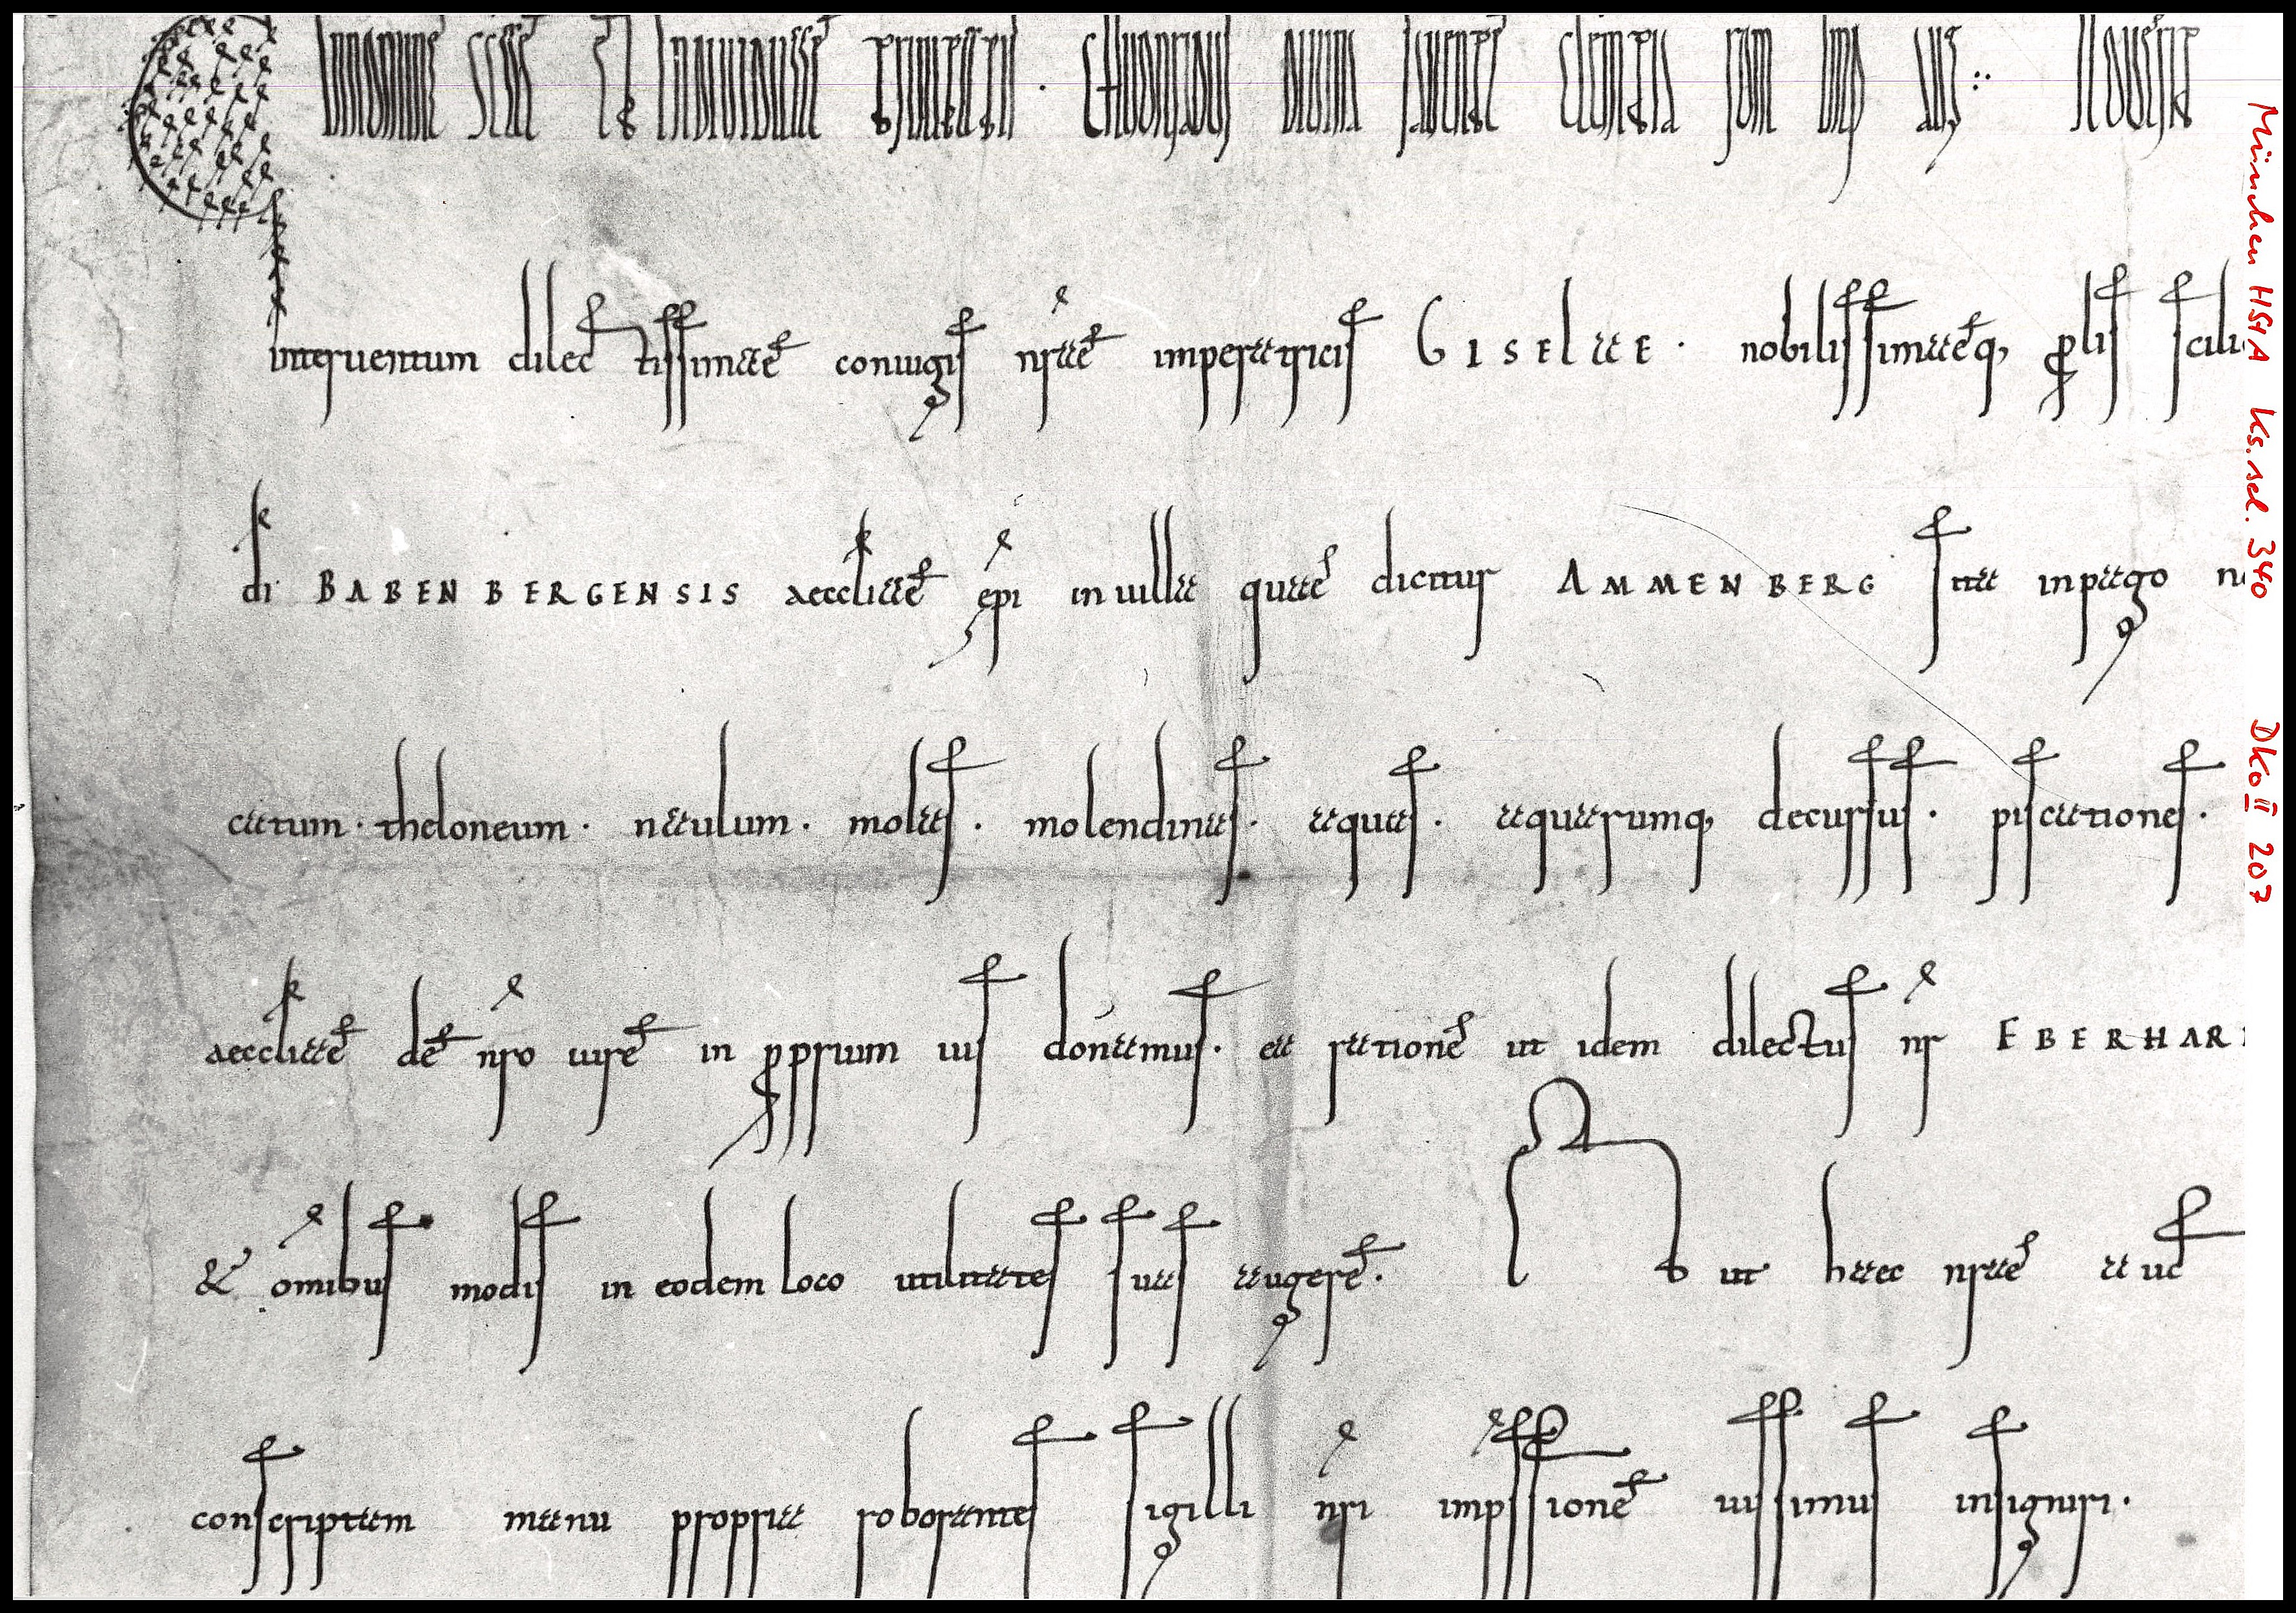 IN nomine sce et individue trinitatis · Chuonradus divina favente clementia rom imp aug : Noverit
interventum dilectissimae coniugis nrae imperatricis GISELAE · nobilissimaeq; plis scili
di BABENBERGENSIS aeccliae epi in villa quae dicitur AMMENBERG sita in pago
catum · theloneum · naulum · molas · molendinas · aquas · aquarumq; decursus · piscationes ·
aeccliae de nro iure in pprium ius donamus · ea ratione ut idem dilectus nr EBERHAR
& omibus modis in eodem loco utilitates suas augere · Et ut haec nrae auct
conscriptam manu propria roborantes sigilli nri impssione iussimus insigniri ·
München HStA Ks. sel. 340 DKo II 207